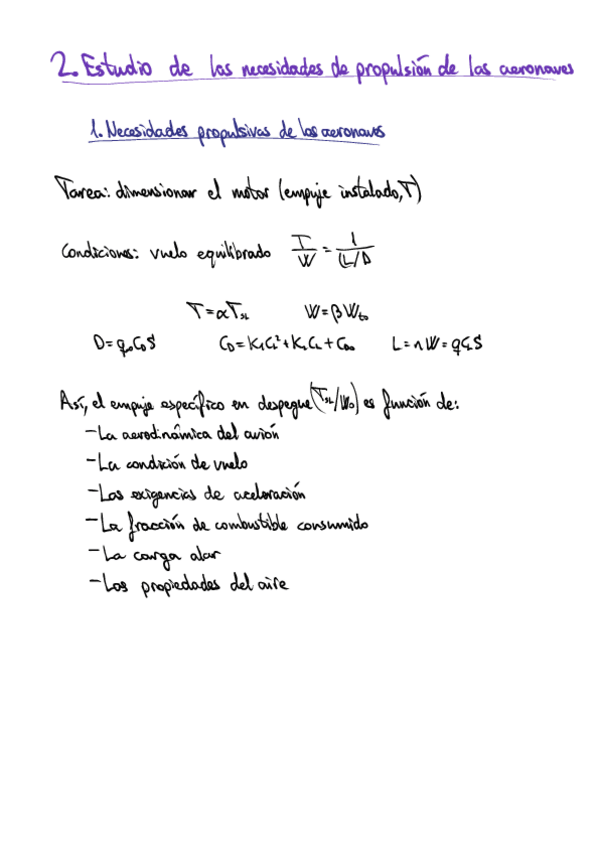 2. Estudio de las necesidades de propulsión de las aeronaves
1. Necesidades propulsivas de las aeronaves
Tarea: dimensionar el motor (empuje instalado, T)
Condiciones: vuelo equilibrado T/W = 1/(L/D)
T = αT_SL W = βW_to
D = q_0 C_D S C_D = K_1 C_L² + K_2 C_L + C_D0 L = nW = q C_L S
Así, el empuje específico en despegue (T_SL/W_0) es función de:
- La aerodinámica del avión
- La condición de vuelo
- Las exigencias de aceleración
- La fracción de combustible consumido
- La carga alar
- Las propiedades del aire